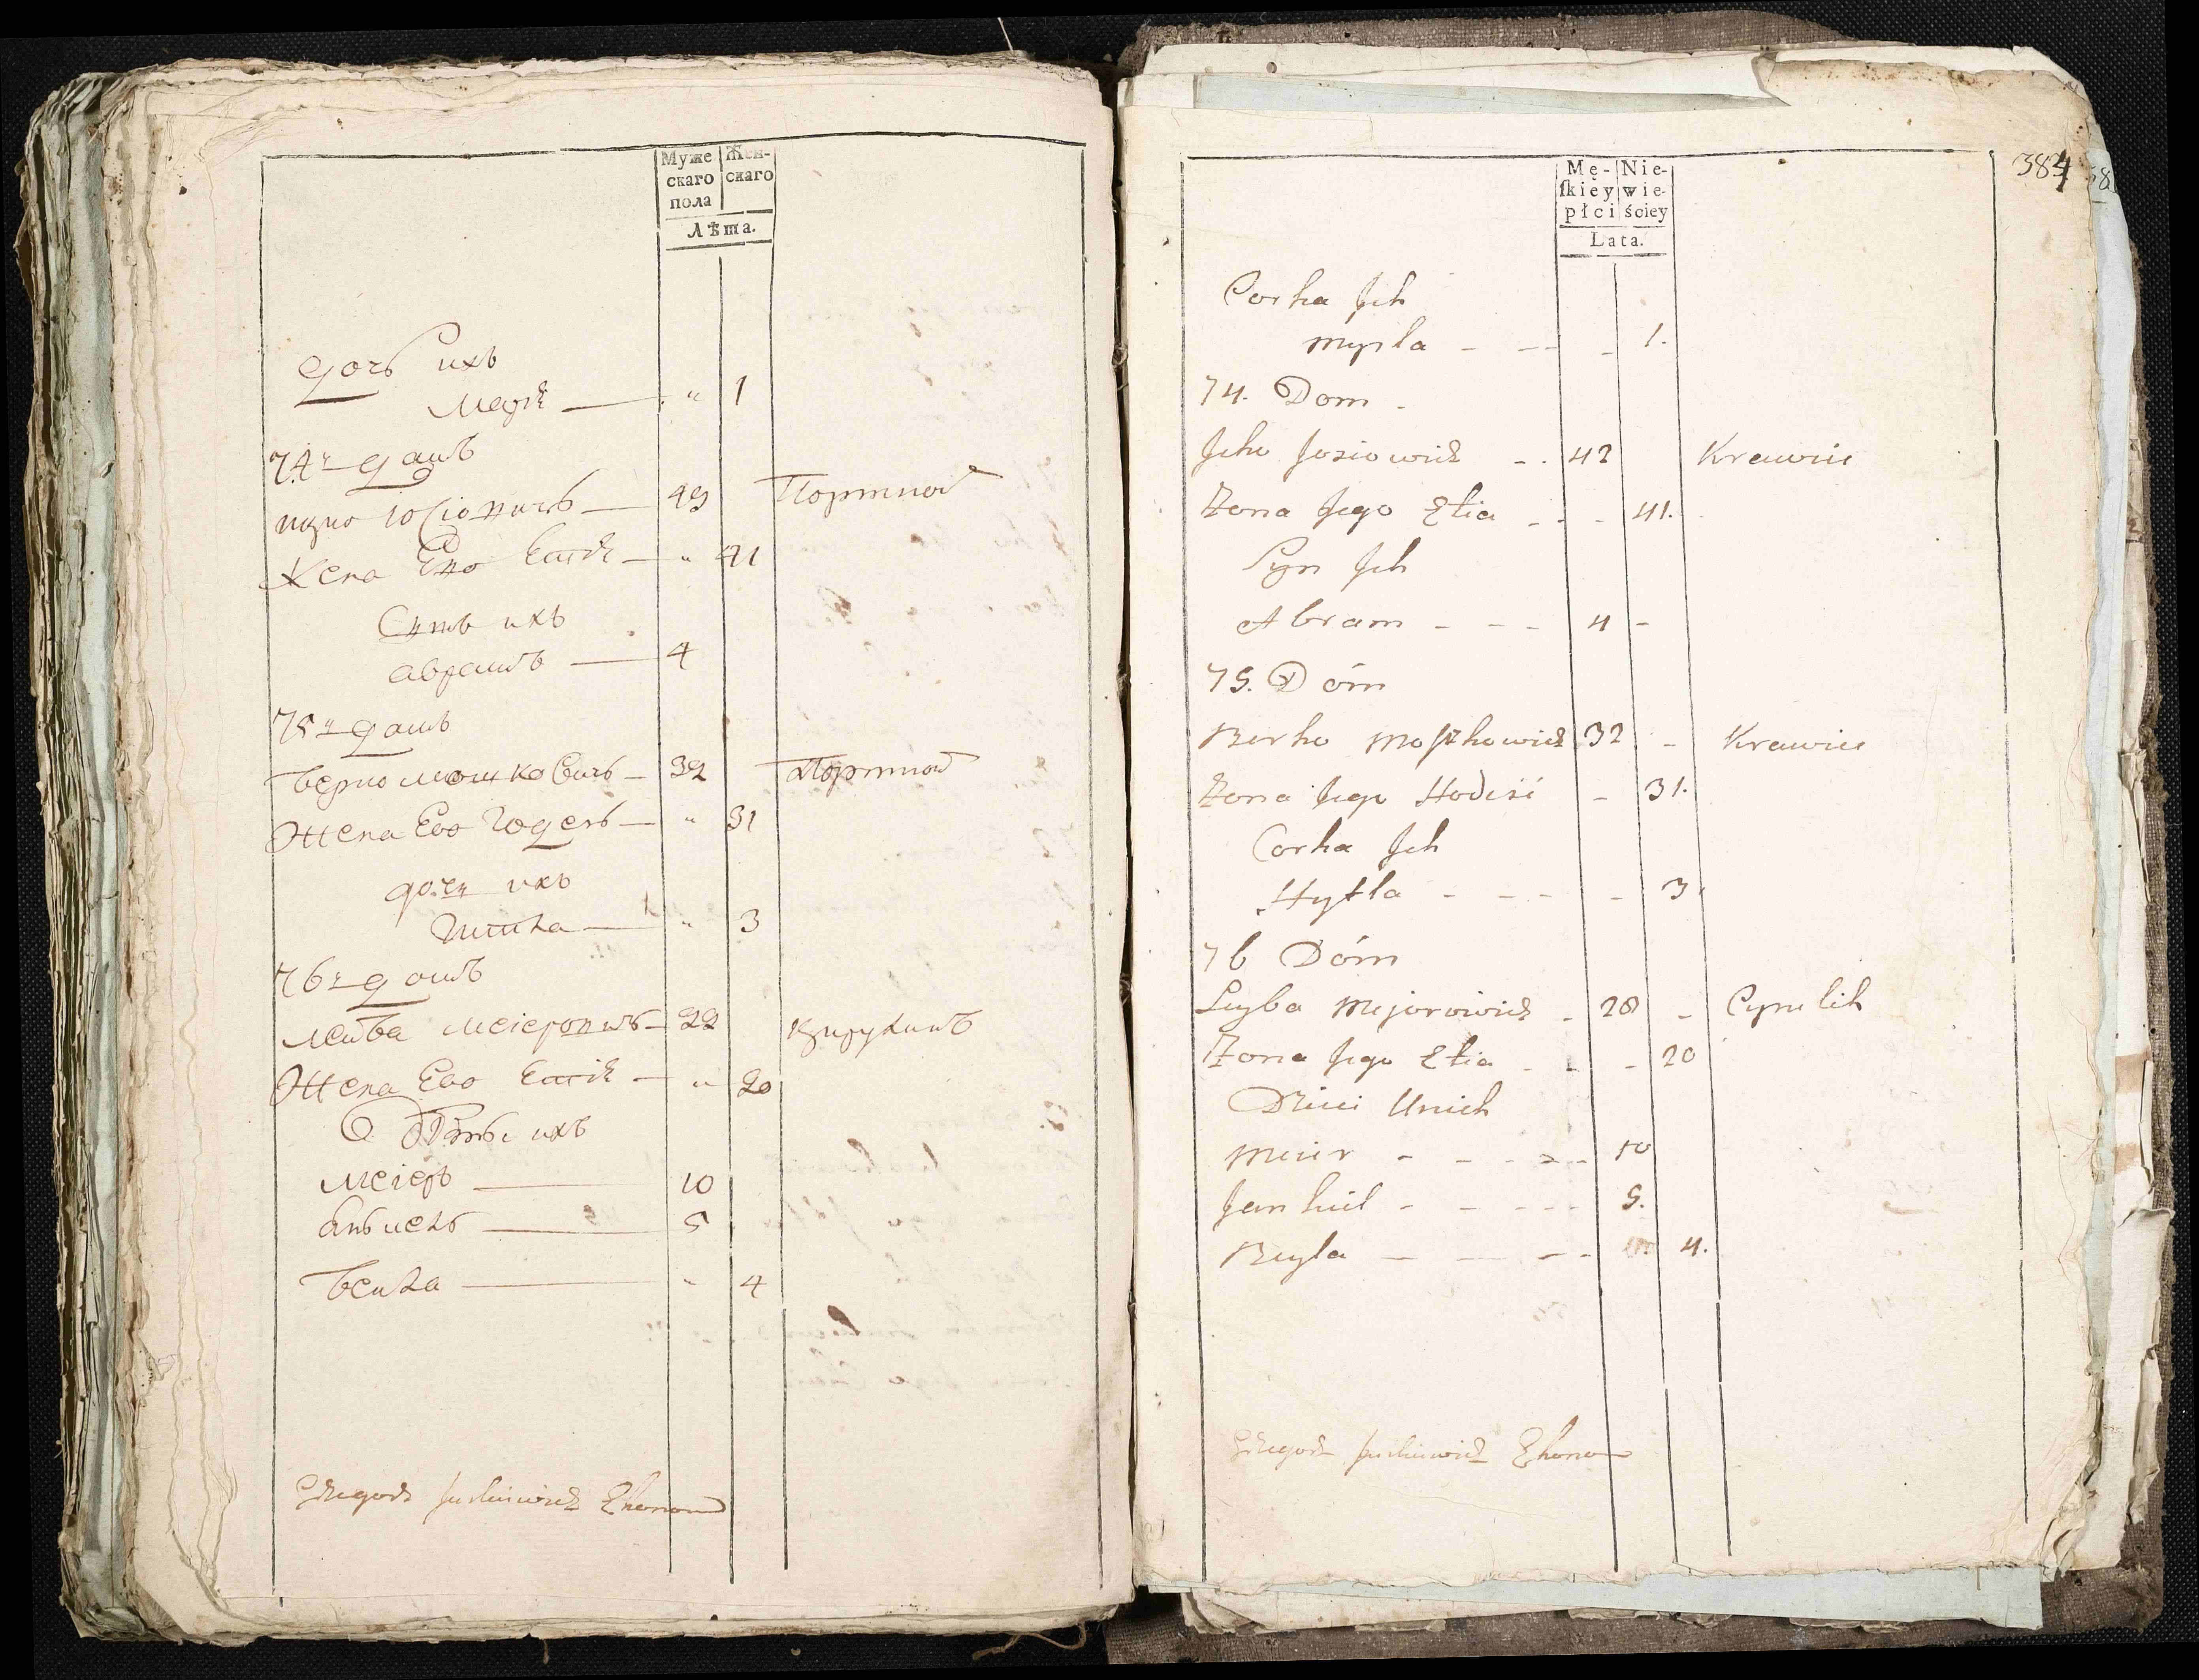 Муже Жен-
скаго скаго
пола
Лѣта.
дочь ихъ
" 1
74й домъ
ицко Юсіовичъ — 42 Портной
Жена Ево Еття — " 41
Сынъ ихъ
аврамъ — 4
75й домъ
Берко мошковичъ — 32 Портной
Жена Ево Годесь — " 31
дочь ихъ
Гитла — " 3
76й домъ
Лейба Меіеровичъ — 22 Цируликъ
Жена Ево Еття — " 20
Дѣти ихъ
Меіеръ — 10
Янкель — 5
Бейла — " 4
Grzegorz Ekonom
384
Mę- Nie-
ſkiey wie-
płci ściey
Lata.
Corka Jch
Myrla - -- - 1.
74. Dom.
Jcko Josiowicz - . 42 Krawiec
Żona Jego Etia - - - 41.
Syn Jch
Abram - - - 4 -
75. Dóm
Berko Moszkowicz 32 - Krawiec
Żona Jego Hodesi - 31.
Corka Jch
Hytla - -- - 3.
76 Dóm
Leyba Mejorowicz - 28 - Cyrulik
Żona Jego Etia - - - 20
Dzieci Unich
Meier - - - - - 10
Jankiel - - - - - 5.
Beyla - - - - 4.
Grzegorz Ekonom